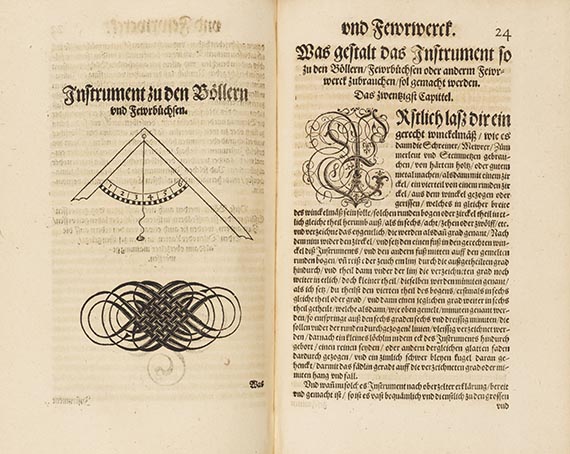 Instrument zu den Böllern
und Fewrbüchsen.
Was
und Fewrwerck.
24
Was gestalt das Instrument so
zu den Böllern/ Fewrbüchsen oder anderm Fewr-
werck zubrauchen/ sol gemacht werden.
Das zwentzigst Capittel.
ERstlich lasz dir ein
gerecht winckelmäß/ wie es
dann die Schreiner/ Mewrer/ Züm
merleut und Steinmetzen gebrau-
chen/ von härtem holtz/ oder gutem
metal machen/ alsdann mit einem zir
ckel/ ein vierteil von einem runden zir
ckel/ aus dem winckel gezogen oder
gerissen/ welches in gleicher breite
des winckelmäß sein solle/ solchen runden bogen oder zirckel theil in et-
lich gleiche theil herumb auß/ als in sechs/ acht/ zehen oder zwölff/ etc.
und verzeichne das eygentlich/ die werden alsdañ grad genant/ Nach
dem nim wider den zirckel/ und setz den einen fuß in den gerechten winc-
kel diß Instruments/ und den andern fuß mitten auff den gemelten
runden bogen/ uñ reiß oder zeuch ein lini durch die außgetheilten grad
hindurch/ und theil dann under der lini die verzeichneten grad noch
weiter in etlich/ doch kleiner theil/ dieselben werden minuten genant/
als ich setz/ du theilst den vierten theil des bogens/ erstmals in sechs
gleiche theil oder grad/ und dann einen jeglichen grad weiter in sechs
theil getheilt/ welche alsdann/ wie oben gemelt/ minuten genant wer-
den/ so entspringt auß den sechs graden/ sechs und dreissig minuten/ die
sollen under der runden durchgezognen linien/ vleissig verzeichnet wer-
den/ darnach ein kleines löchlin zu dem eck des Instruments hindurch
gebort/ einen reinen seyden/ oder andern dergleichen glatten faden
dardurch gezogen/ und ein zimlich schwer bleyen kugel daran ge-
henckt/ darmit das fädlin gerad auff die verzeichneten grad oder mi-
nuten hang und fall.
Und wañ nu solch es Instrument nach oberzelter erklärung/ bereit
und gemacht ist/ so ist es vast bequämlich und dienstlich zu den grossen
und